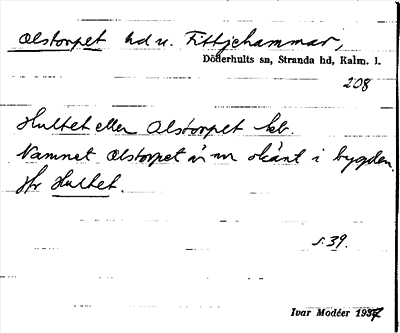 Olstorpet hd u. Fittjehammar,
Döderhults sn, Stranda hd, Kalm. l.
208
Hultet eller Olstorpet leb.
Namnet Olstorpet är nu okänt i bygden.
Jfr Hultet.
s. 39.
Ivar Modéer 1937